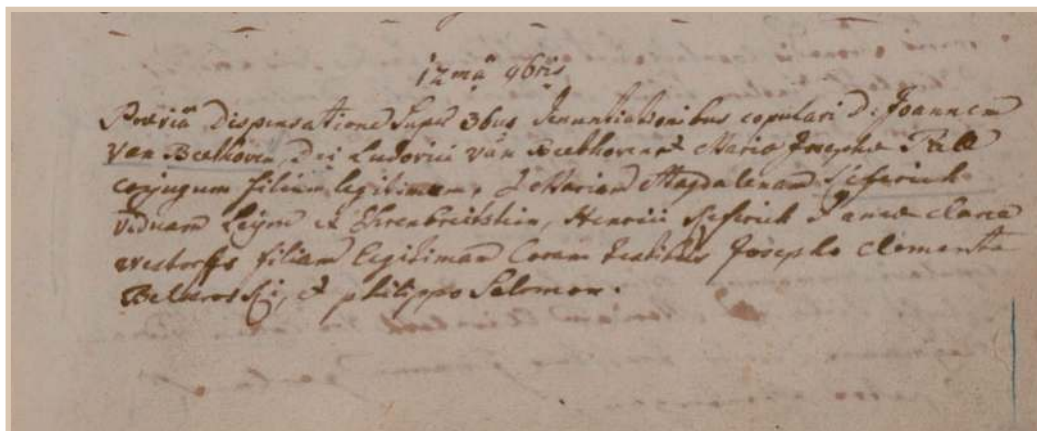 12mâ 9bris
Praeviâ dispensatione super 3bus denuntiationibus copulavi D: Joannem
van Beethoven, Dni Ludovici van Beethoven et Mariae Josephae Poll
conjugum filium legitimum, & Mariam Magdalenam Keferich
viduam Leym ex Ehrenbreitstein, Henrici Keferich et annae clarae
westorffs filiam legitimam Coram testibus Josepho clemente
Belserosky, et philippo Salomon.